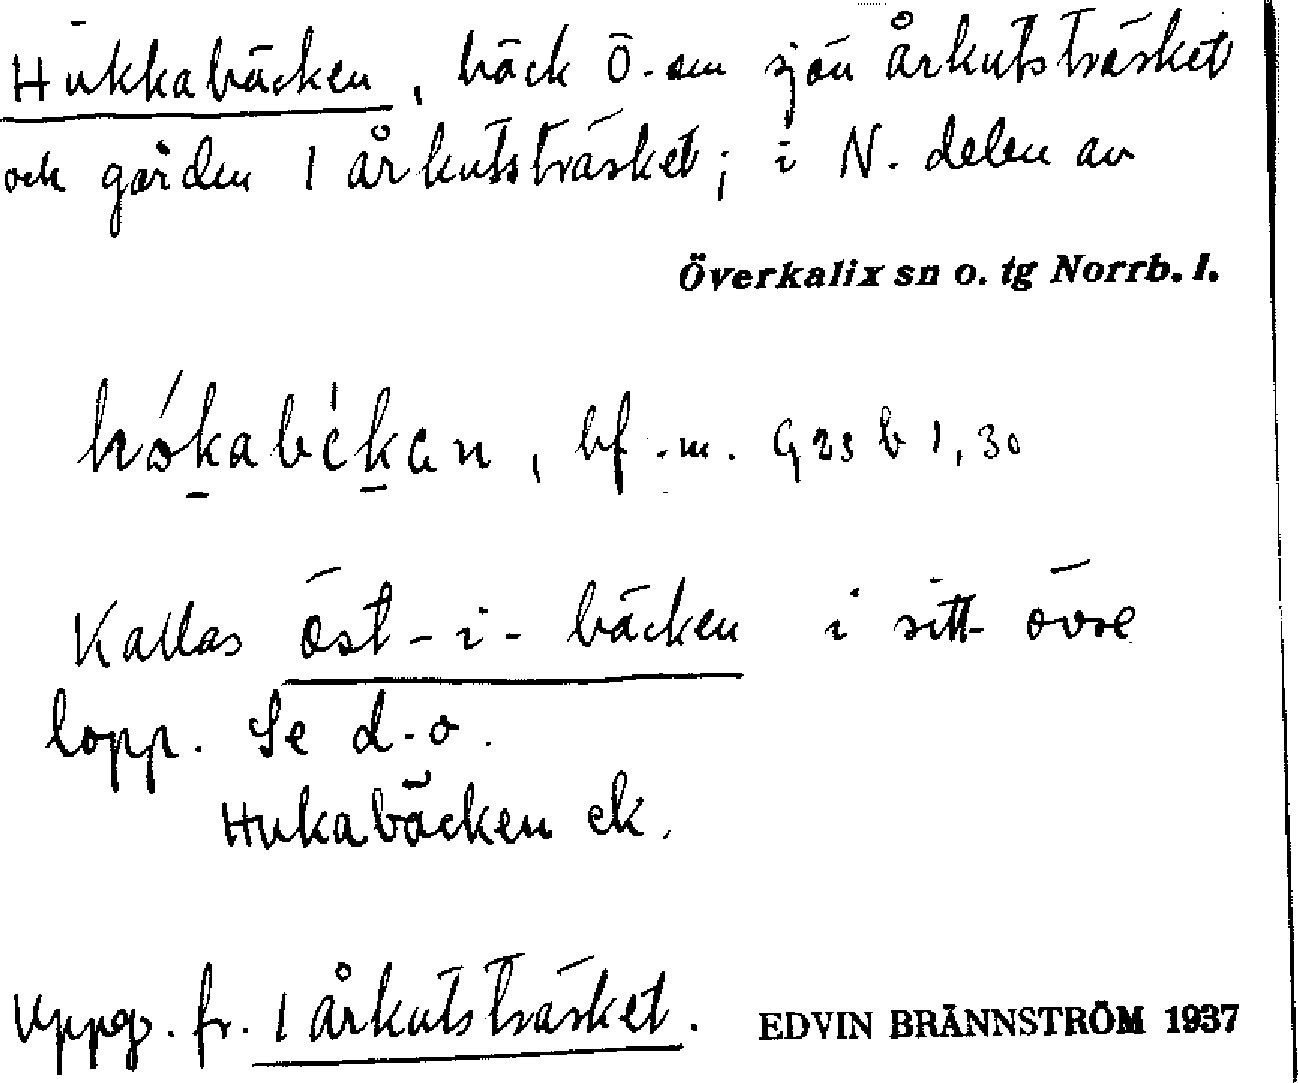 Hukkabäcken, bäck Ö. om sjön Årkutsträsket
och gården 1 Årkutsträsket; i N. delen av
Överkalix sn o. tg Norrb. l.
hókabékan, bf. m. G 23 b 1, 30
Kallas Öst-i-bäcken i sitt övre
lopp. Se d.o.
Hukabäcken ek.
Uppg. fr. 1 Årkutsträsket.
EDVIN BRÄNNSTRÖM 1937